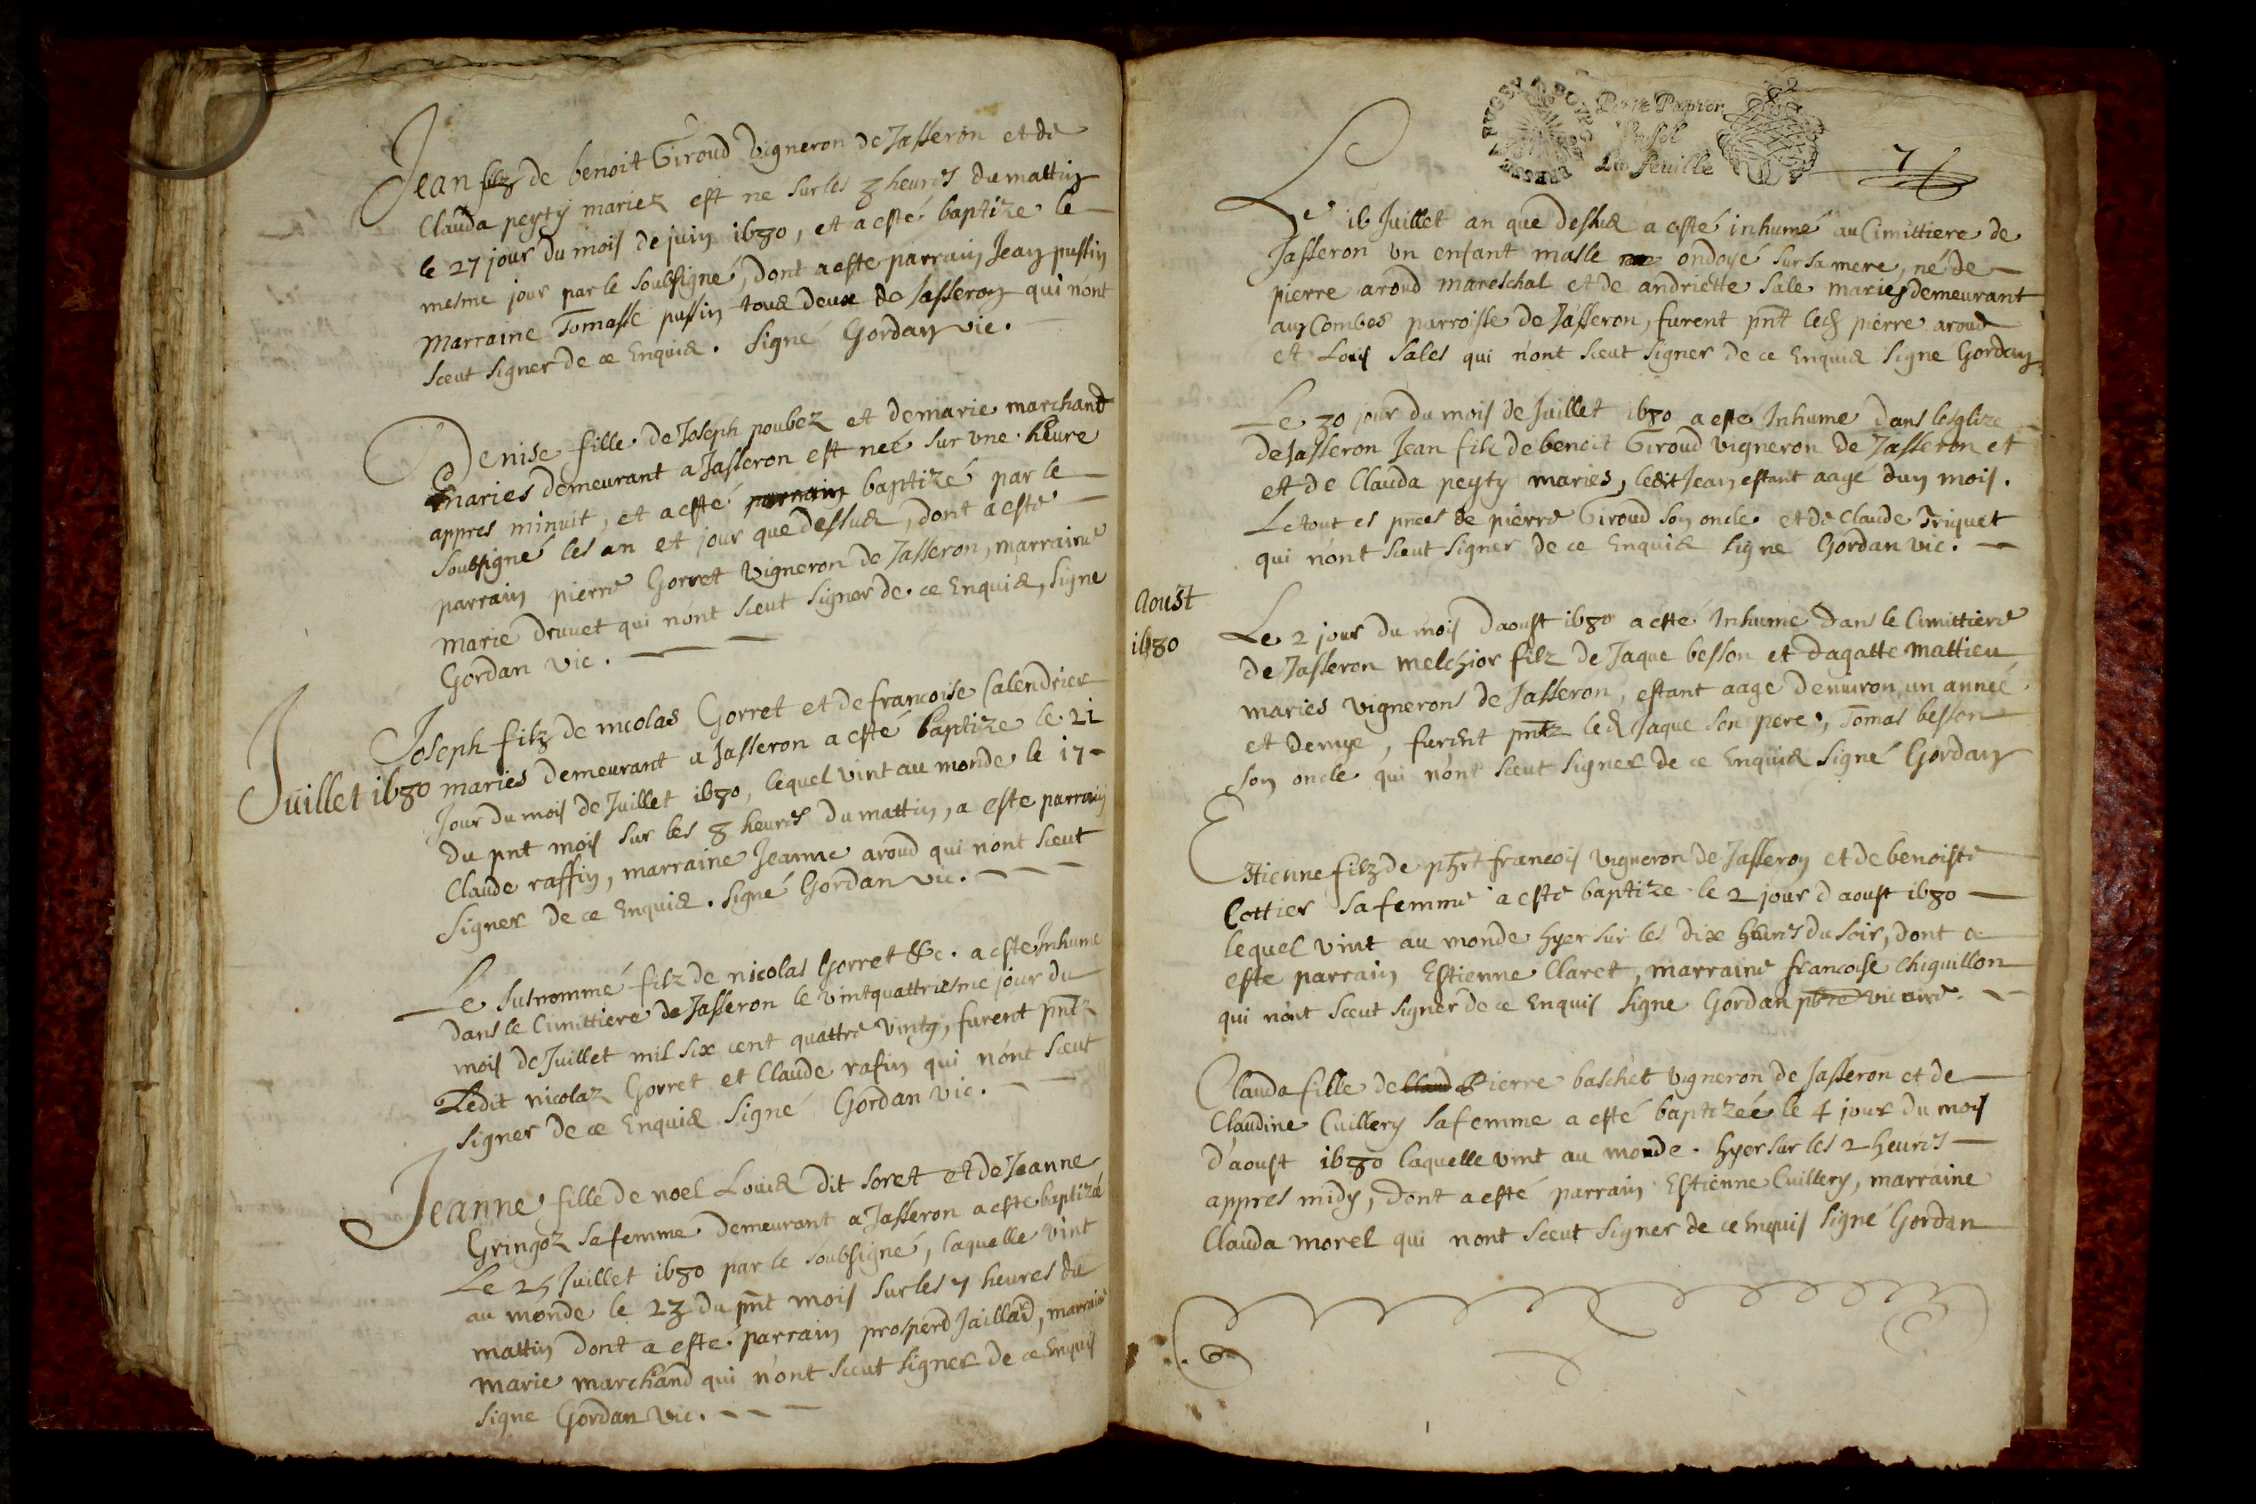 Jean filz de benoit Giroud vigneron de Jasseron et de
Clauda peyty mariez est né sur les 3 heures du mattin
le 27 jour du mois de juin 1680, et a esté baptize le
mesme jour par le soubsigné, dont a este parrain Jean pussin
marraine Tomasse pussin tous deux de Jasseron qui nont
sceut signer de ce Enquis. Signé Gordan vic.
Denise fille de Joseph poubez et de marie marchand
mariés demeurant a Jasseron est neé sur vne heure
appres minuit, et a esté parrain baptizé par le
soubsigné les an et jour que dessus, dont a esté
parrain pierre Gorret vigneron de Jasseron, marraine
marie druuet qui n'ont sceut signer de ce Enquis, signe
Gordan vic.
Joseph filz de nicolas Gorret et de francoise Calendrier
Juillet 1680 mariés demeurant a Jasseron a esté baptize le 21
Jour du mois de Juillet 1680, lequel vint au monde le 17
du pnt mois sur les 8 heures du mattin, a este parrain
Claude raffin, marraine Jeanne aroud qui n'ont sceut
signer de ce Enquis. signé Gordan vic.
Le susnommé filz de nicolas Gorret &c. a este Inhumé
dans le Cimittiere de Jasseron le vintquattriesme jour du
mois de Juillet mil six cent quattre vintz, furent pntz
Ledit nicolaz Gorret et Claude rafin qui n'ont sceut
signer de ce Enquis Signé Gordan vic.
Jeanne fille de noel Louis dit soret et de Jeanne
Gringoz sa femme demeurant a Jasseron a este baptizé
Le 25 Juillet 1680 par le soubsigné, laquelle vint
au monde le 23 du pnt mois sur les 7 heures du
mattin dont a esté parrain prosperd Jaillard, marraine
marie marchand qui n'ont sceut signer de ce Enquis
signe Gordan vic.
Petit Papier
La feuille
7
Le 16 Juillet an que dessus a esté inhumé au Cimittiere de
Jasseron vn enfant masle ondoyé sur sa mere, né de
pierre aroud mareschal et de andriette sale mariés demeurant
aux Combes parroisse de Jasseron, furent pnt led pierre aroud
et Louis Sales qui n'ont sceut signer de ce Enquis signé Gordan
Le 30 jour du mois de Juillet 1680 a este Inhumé dans lesglize
de Jasseron Jean filz de benoit Giroud vigneron de Jasseron et
et de Clauda peyty mariés, ledit Jean estant aagé dun mois.
Le tout es pnces de pierre Giroud son oncle et de Claude Triquet
qui n'ont sceut signer de ce Enquis signé Gordan vic.
Aoust
1680
Le 2 jour du mois daoust 1680 a esté Inhumé dans le Cimittiere
de Jasseron melchior filz de Jaque besson et dagatte mattieu
mariés vignerons de Jasseron, estant aage denuiron un anneé
et demye, furent pntz led Jaque son pere, Tomas besson
son oncle qui n'ont sceut signer de ce Enquis signé Gordan
Etienne filz de phrt francois vigneron de Jasseron et de benoiste
Cottier sa femme a esté baptize le 2 jour daoust 1680
lequel vint au monde hyer sur les dix heures du soir, dont a
esté parrain Estienne Claret, marraine francoise Chiquillon
qui n'ont sceut signer de ce Enquis signe Gordan pbre vicaire.
Clauda fille de Claud Pierre baschet vigneron de Jasseron et de
Claudine Cuillery sa femme a esté baptizeé le 4 jour du mois
d'aoust 1680 laquelle vint au monde hyer sur les 2 heures
appres midy, dont a esté parrain Estienne Cuillery, marraine
Clauda morel qui nont sceut signer de ce Enquis signé Gordan